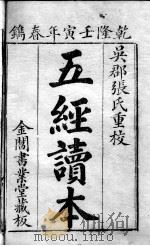 乾隆壬寅年春鐫
吳郡張氏重校
五經讀本
金閶書業堂藏板